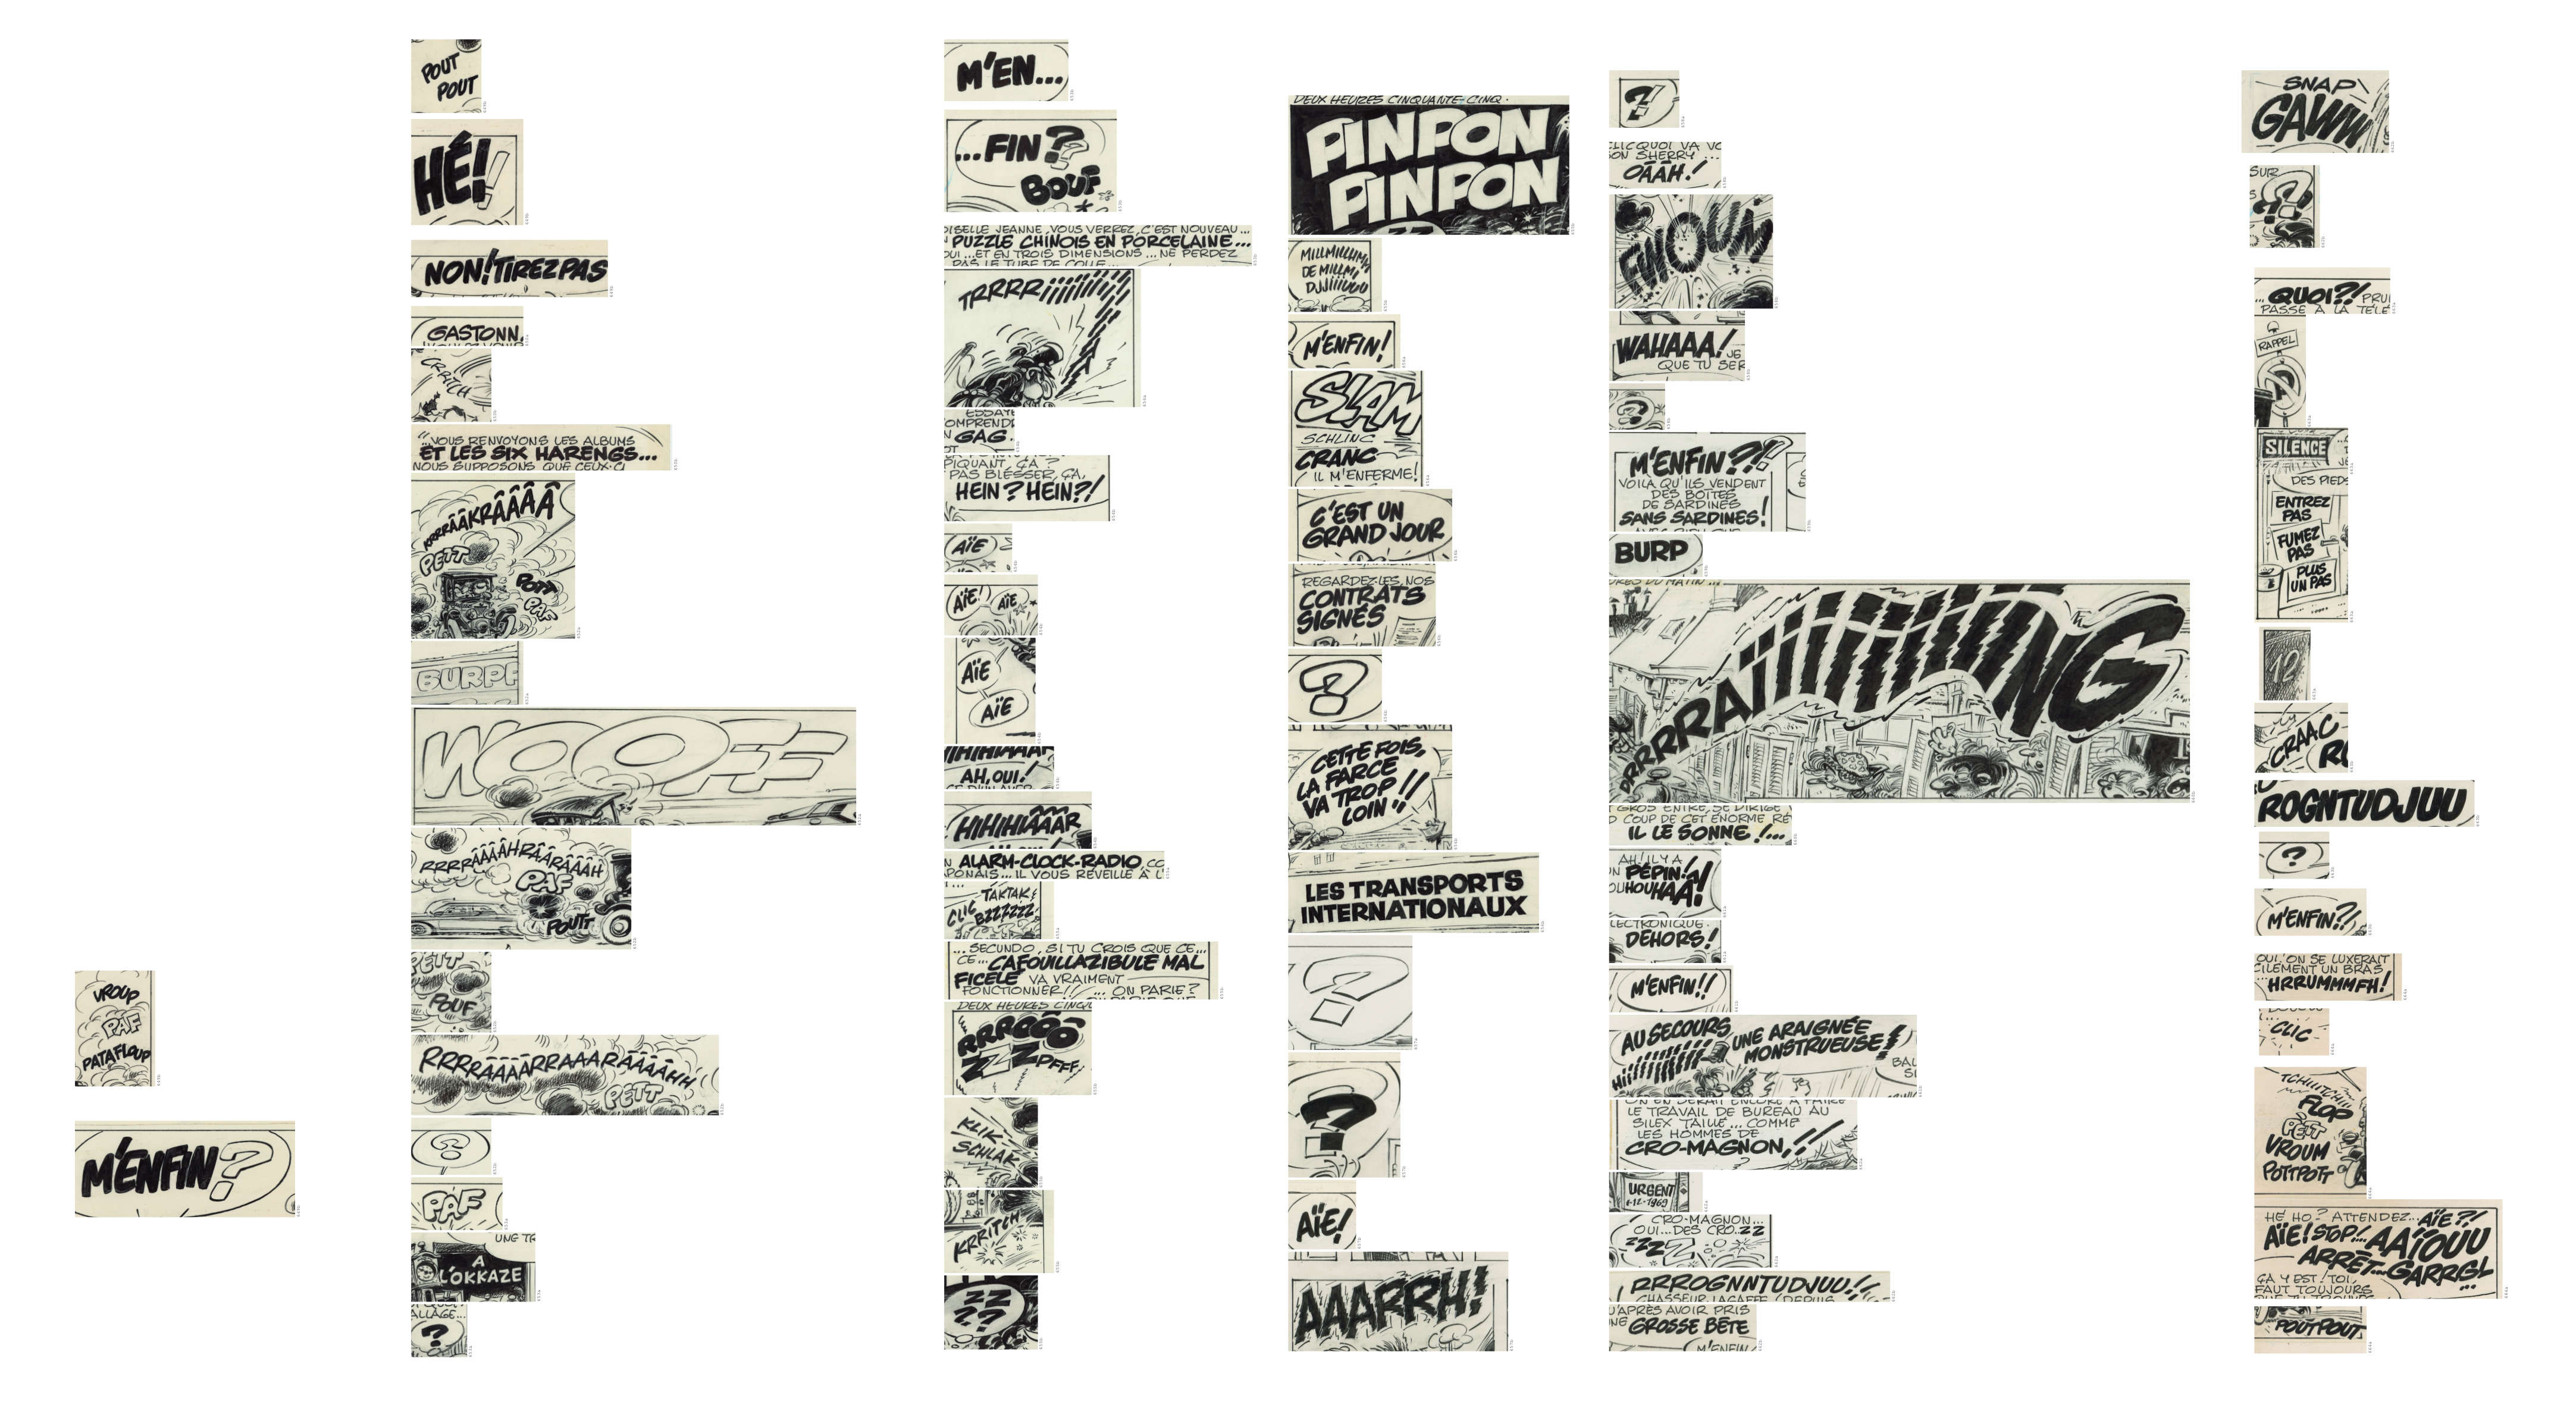 VROUP
PAF
PATAFLOUP
M'ENFIN?
POUT
POUT
HÉ!!
NON! TIREZ PAS
GASTONN
CRRITCH
"...VOUS RENVOYONS LES ALBUMS
ET LES SIX HARENGS...
NOUS SUPPOSONS QUE CEUX-CI
KRRRÂÂKRÂÂÂÂ
PETT
POTT
PAF
BURPF
WOOFF
RRRRÂÂÂÂHRÂÂRÂÂÂÂH
PAF
POUTT
PETT
POUF
RRRRÂÂÂÂRRAAARÂÂÂÂHH
PETT
?
PAF
UNE
A
L'OKKAZE
ALLAGE...
?
M'EN...
...FIN??
BOUF
OISELLE JEANNE, VOUS VERREZ, C'EST NOUVEAU...
PUZZLE CHINOIS EN PORCELAINE...
OUI...ET EN TROIS DIMENSIONS...NE PERDEZ
PAS LE TUBE DE COLLE...
TRRRRIIIIIIIIII
ESSAYE
OMPREND
GAG.
PIQUANT, ÇA ?
PAS BLESSER, ÇA,
HEIN ? HEIN ?!
AÏE
AÏE!
AÏE
AÏE
AÏE
HIHIHIÂÂÂR
AH, OUI!
HIHIHIÂÂÂR
ALARM-CLOCK-RADIO, CO
PONAIS... IL VOUS RÉVEILLE À L'
TAKTAK
CLIC
BZZZZZZ
...SECUNDO, SI TU CROIS QUE CE...
CE... CAFOUILLAZIBULE MAL
FICELÉ VA VRAIMENT
FONCTIONNER!/ ... ON PARIE ?
DEUX HEURES CINQU
RRRÔÔÔ
ZZZPFFF
KLIK
SCHLAK
KRRITCH
ZZ
??
DEUX HEURES CINQUANTE-CINQ.
PINPON
PINPON
MILLMILLIMM
DE MILLMI
DJIIIIUUU
M'ENFIN!
SLAM
SCHLINC
CRANC
IL M'ENFERME!
C'EST UN
GRAND JOUR
REGARDEZ-LES, NOS
CONTRATS
SIGNÉS
?
CETTE FOIS,
LA FARCE
VA TROP
LOIN!!
LES TRANSPORTS
INTERNATIONAUX
?
?
AÏE!
AAARRH!
?!
CLICQUOI VA VO
SON SHERRY...
OÂÂH!
WAHAAA! JE
QUE TU SER
?
M'ENFIN?!?
VOILÀ QU'ILS VENDENT
DES BOÎTES
DE SARDINES
SANS SARDINES!
BURP
DRRRRRAÏIIIIIIIIIING
D COUP DE CET ÉNORME RÉ
IL LE SONNE !...
AH! IL Y A
UN PÉPIN!
OUHOUHAÂ!
LECTRONIQUE.
DEHORS!
M'ENFIN!!
AU SECOURS
HIIIIIIIIII
UNE ARAIGNÉE
MONSTRUEUSE!
BAL
ON EN SERAIT ENCORE À FAIRE
LE TRAVAIL DE BUREAU AU
SILEX TAILLÉ... COMME
LES HOMMES DE
CRO-MAGNON,!!
URGENT
1-12-1969
CRO-MAGNON...
OUI...DES CRO.ZZ
ZZZZ
RRROGNNTUDJUU!!
CHASSEUR LAGAFFE (DEPUIS
U'APRÈS AVOIR PRIS
UNE GROSSE BÊTE
M'ENFIN
SNAP
GAWW
SUR
?
...QUOI?! PRU
PASSE À LA TÉLÉ
RAPPEL
SILENCE
DES PIEDS
ENTREZ
PAS
FUMEZ
PAS
PLUS
UN PAS
12
CRAAC
RO
ROGNTUDJUU
?
M'ENFIN?!
OUI, ON SE LUXERAIT
CILEMENT UN BRAS
...HRRUMMMFH!
CLIC
TCHIIITCHII
FLOP
PETT
VROUM
POTTPOTT
HÉ HO? ATTENDEZ...AÏE?!
AÏE! STOP!...AAÏOUU
ARRÊT...GARRGL
...
ÇA Y EST! TOI,
FAUT TOUJOURS
POUTPOUT